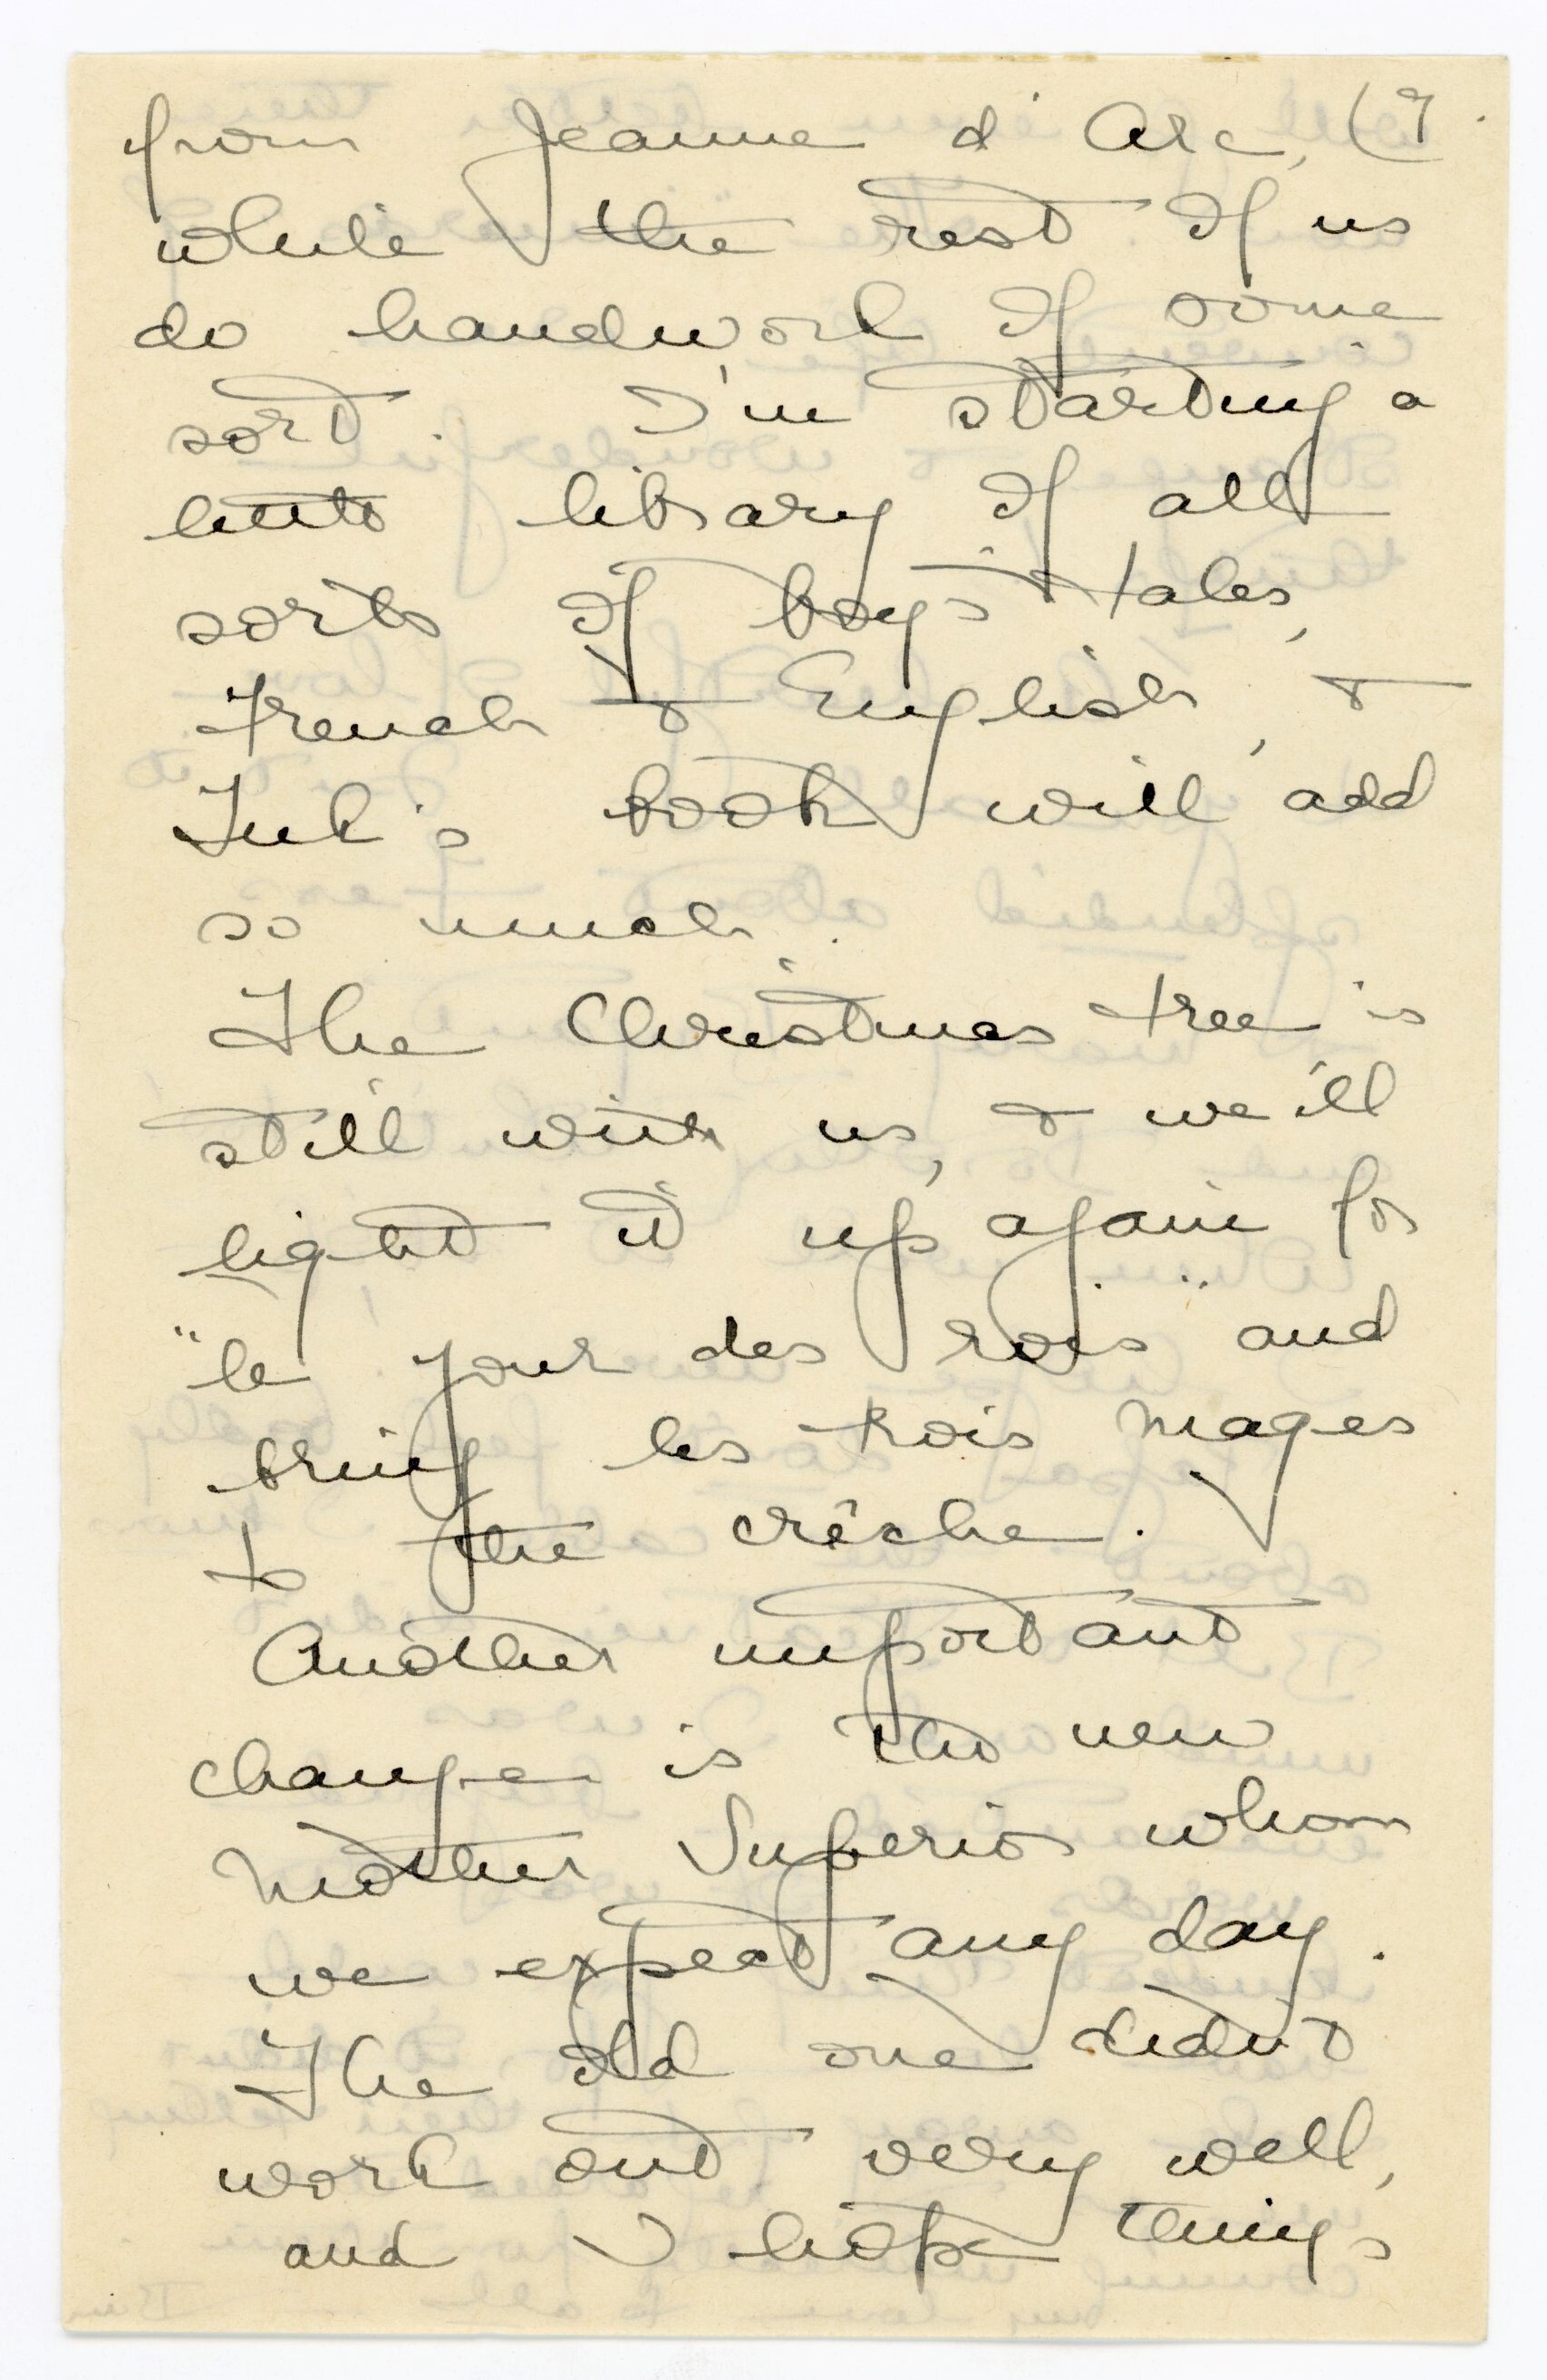 from Jeanne d'Arc, (9.
while the rest of us
do handwork of some
sort. I'm starting a
little library of all
sorts of boys' tales,
French & English, &
Tuk's book will add
so much.
The Christmas tree is
still with us, & we'll
light it up again for
"le jour des rois" and
bring les trois Mages
to the crèche.
Another important
change is the new
Mother Superior whom
we expect any day.
The old one didn't
work out very well,
and I hope things